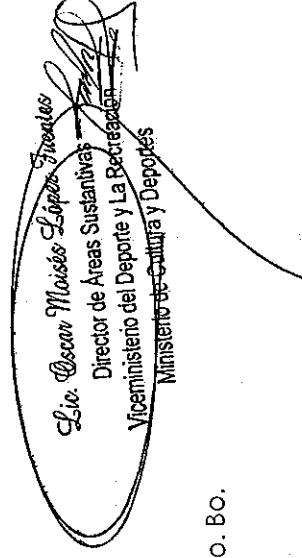 Lic. Oscar Moisés López Fuentes
Director de Áreas Sustantivas
Viceministerio del Deporte y La Recreación
Ministerio de Cultura y Deportes
o. Bo.